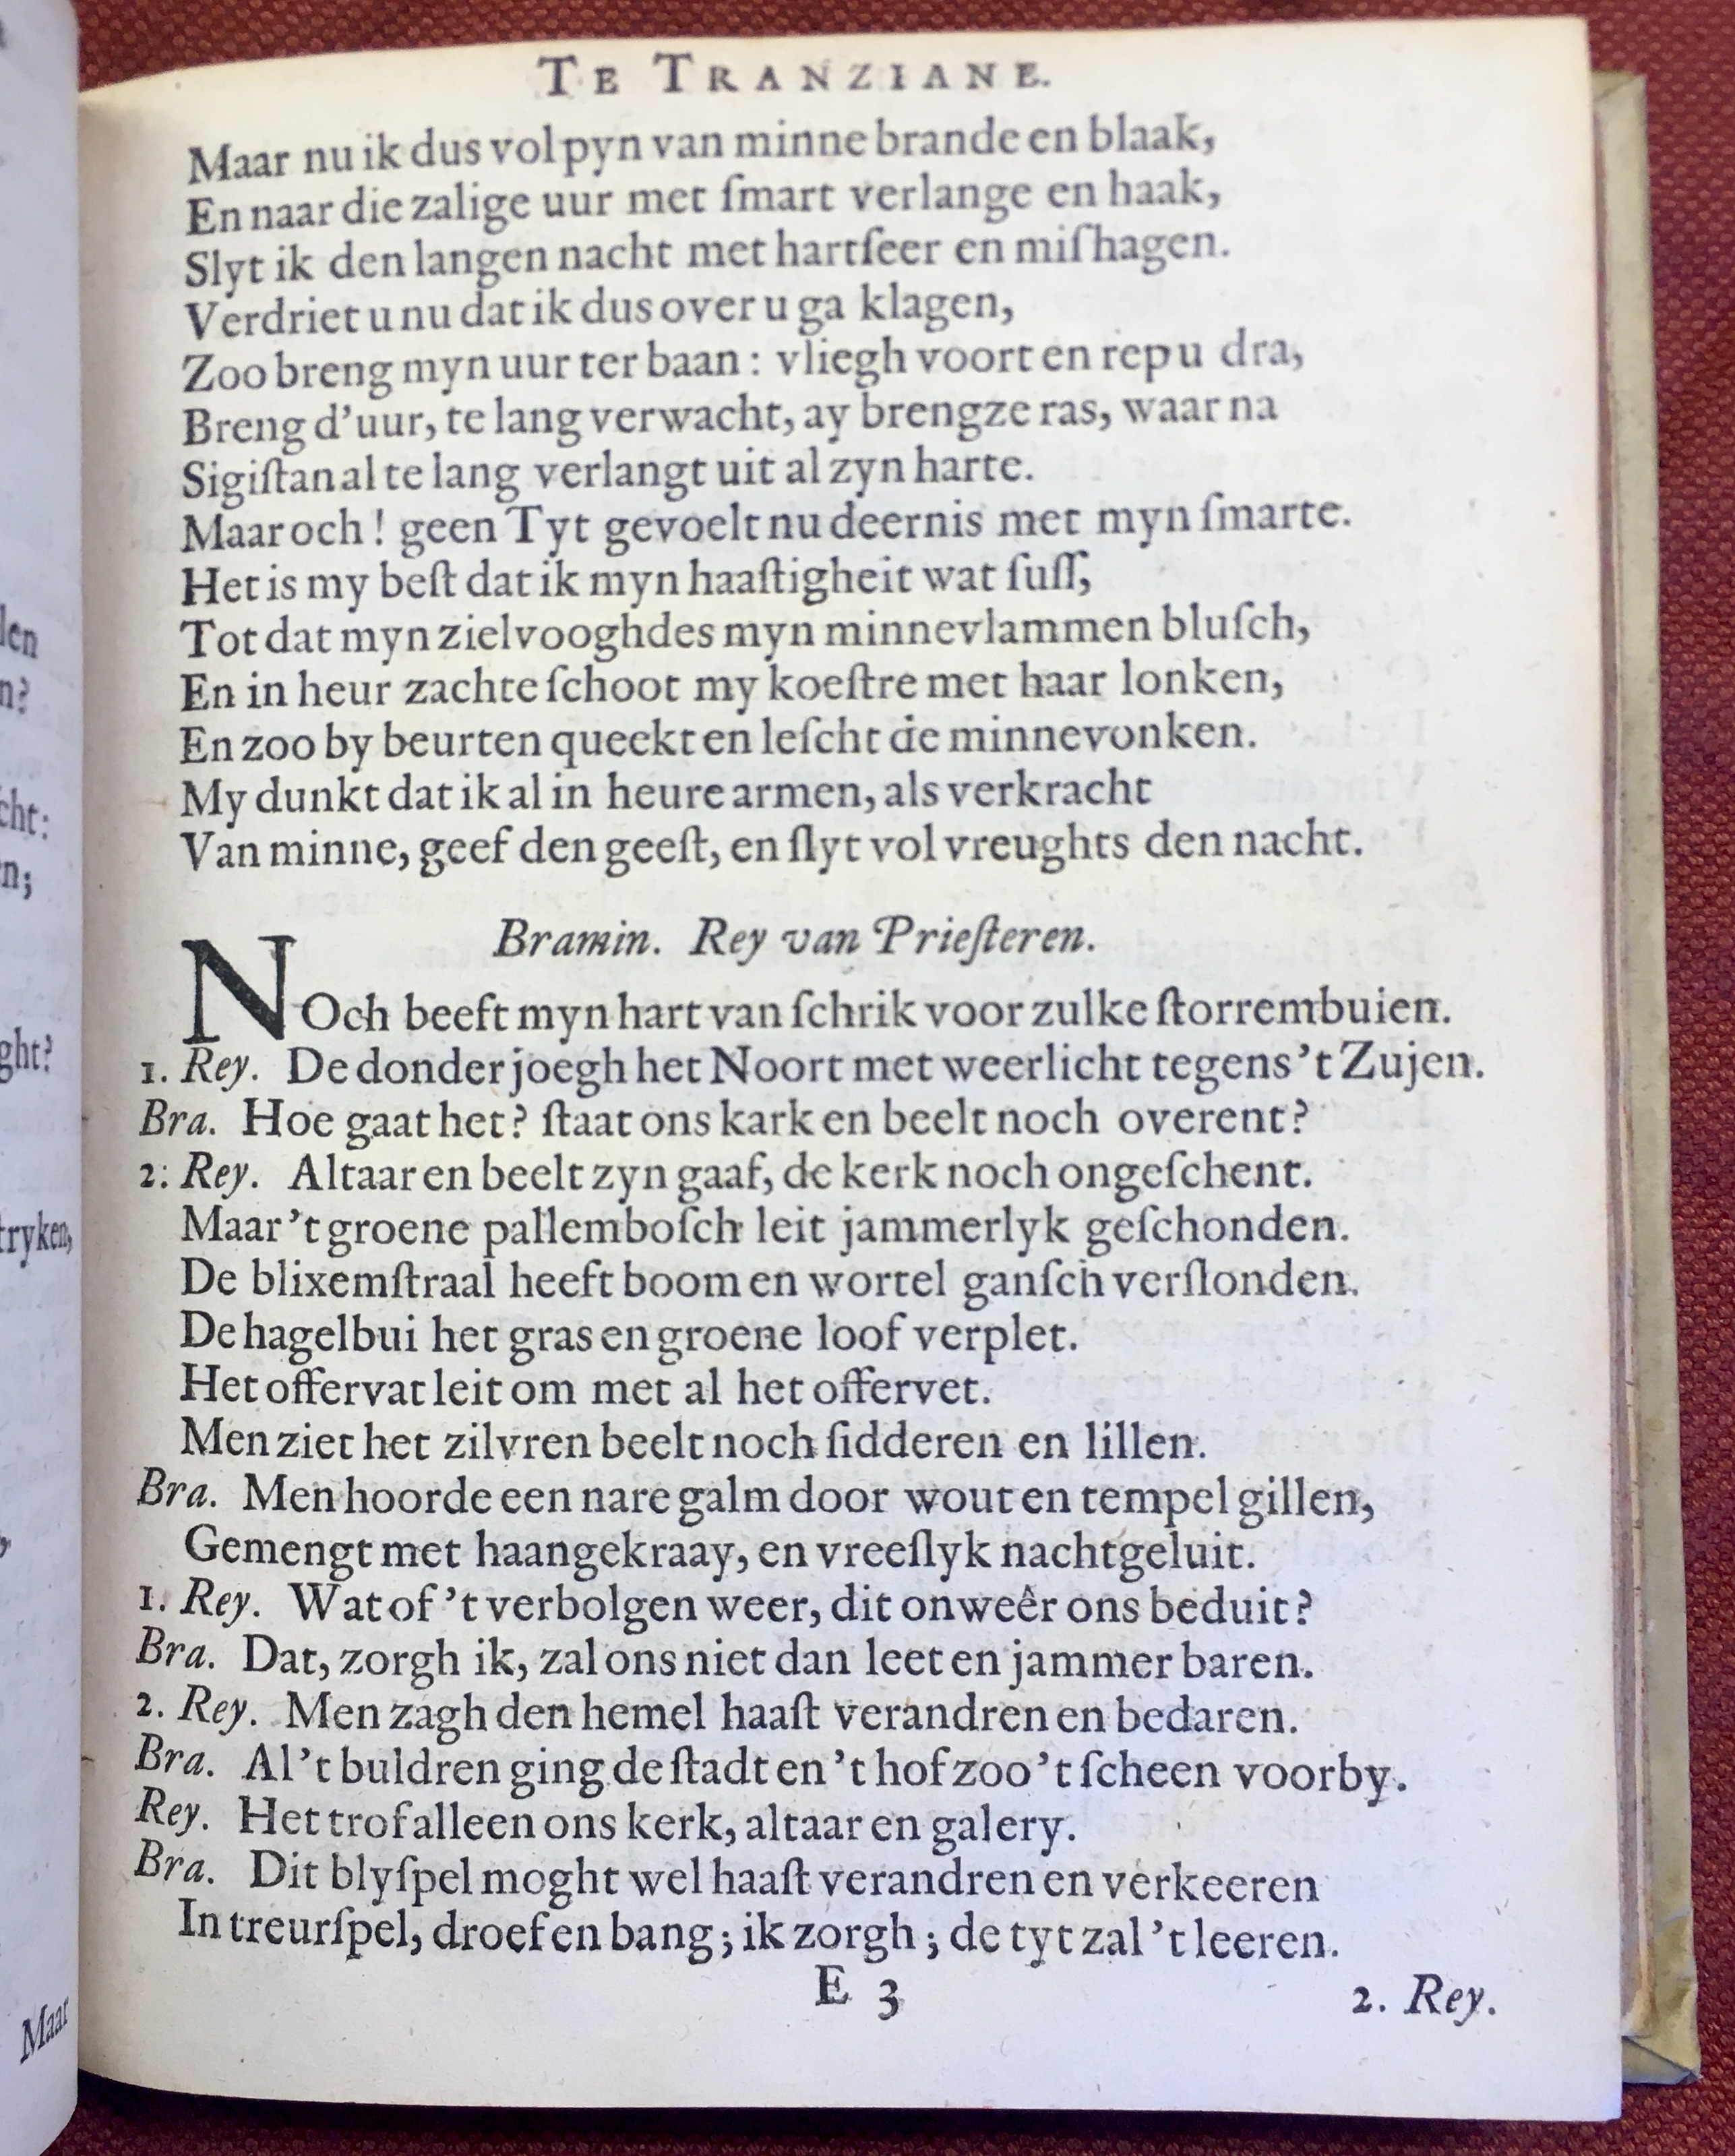 TE TRANZIANE.
Maar nu ik dus vol pyn van minne brande en blaak,
En naar die zalige uur met ſmart verlange en haak,
Slyt ik den langen nacht met hartſeer en miſhagen.
Verdriet u nu dat ik dus over u ga klagen,
Zoo breng myn uur ter baan: vliegh voort en rep u dra,
Breng d'uur, te lang verwacht, ay breng ze ras, waar na
Sigiſtan al te lang verlangt uit al zyn harte.
Maar och! geen Tyt gevoelt nu deernis met myn ſmarte.
Het is my beſt dat ik myn haaſtigheit wat ſuſſ,
Tot dat myn zielvooghdes myn minnevlammen bluſch,
En in heur zachte ſchoot my koeſtre met haar lonken,
En zoo by beurten queekt en leſcht de minnevonken.
My dunkt dat ik al in heure armen, als verkracht
Van minne, geef den geeſt, en ſlyt vol vreughts den nacht.
Bramin. Rey van Prieſteren.
NOch beeft myn hart van ſchrik voor zulke ſtorrembuien.
1. Rey. De donder joegh het Noort met weerlicht tegens 't Zujen.
Bra. Hoe gaat het? ſtaat ons kark en beelt noch overent?
2: Rey. Altaar en beelt zyn gaaf, de kerk noch ongeſchent.
Maar 't groene pallemboſch leit jammerlyk geſchonden.
De blixemſtraal heeft boom en wortel ganſch verſlonden.
De hagelbui het gras en groene loof verplet.
Het offervat leit om met al het offervet.
Men ziet het zilvren beelt noch ſidderen en lillen.
Bra. Men hoorde een nare galm door wout en tempel gillen,
Gemengt met haangekraay, en vreeſlyk nachtgeluit.
1. Rey. Wat of 't verbolgen weer, dit onweêr ons beduit?
Bra. Dat, zorgh ik, zal ons niet dan leet en jammer baren.
2. Rey. Men zagh den hemel haaſt verandren en bedaren.
Bra. Al 't buldren ging de ſtadt en 't hof zoo 't ſcheen voorby.
Rey. Het trof alleen ons kerk, altaar en galery.
Bra. Dit blyſpel moght wel haaſt verandren en verkeeren
In treurſpel, droef en bang; ik zorgh; de tyt zal 't leeren.
E 3
2. Rey.
Maar